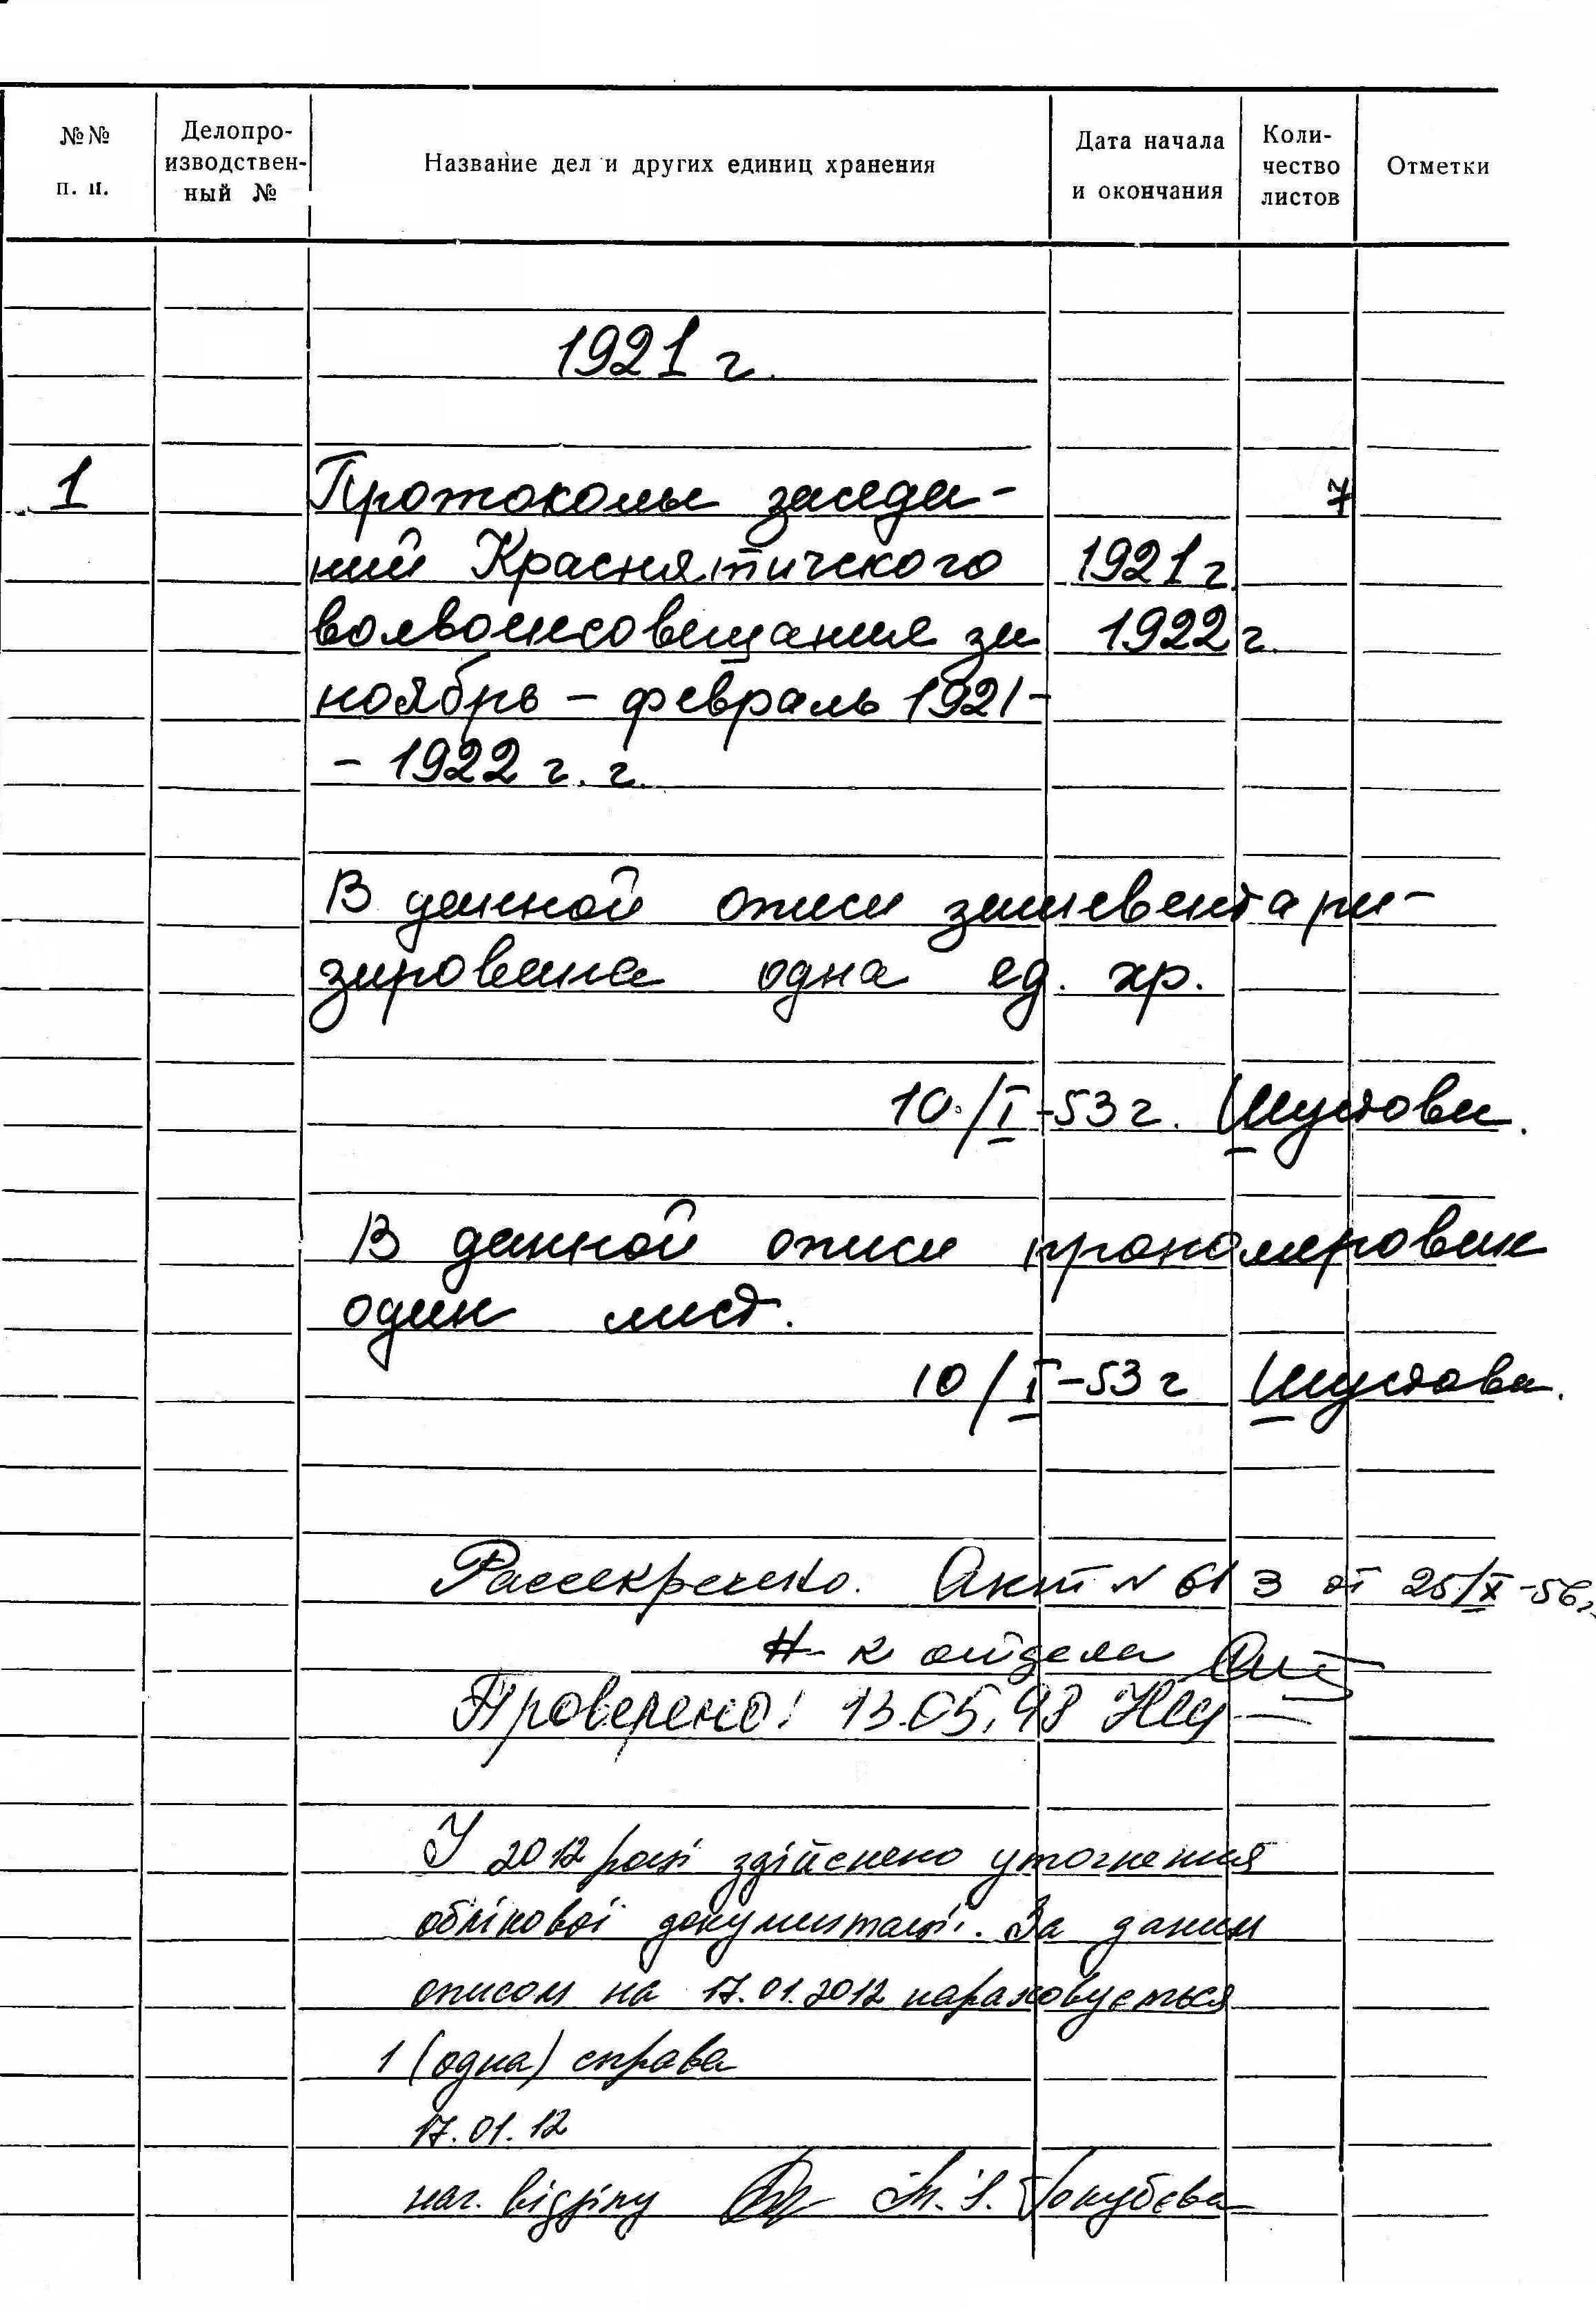 №№ п. п.
Делопро-
изводствен-
ный №
Название дел и других единиц хранения
Дата начала
и окончания
Коли-
чество
листов
Отметки
1921 г.
1 Протоколы заседа- 7
ний Краснятичского 1921 г.
волвоенсовещания за 1922 г.
ноябрь – февраль 1921-
- 1922 г. г.
В данной описи заинвентари-
зирована одна ед. хр.
10/I-53 г. Шустова.
В данной описи пронумерован
один лист.
10/I-53 г Шустова.
Рассекречено. Акт № 61 3 от 25/IX-56г.
Н-к отдела
Проверено! 13.05.98
У 2012 році здійснено уточнення
облікової документації. За даним
описом на 17.01.2012 нараховується
1 (одна) справа
17.01.12
нач. відділу